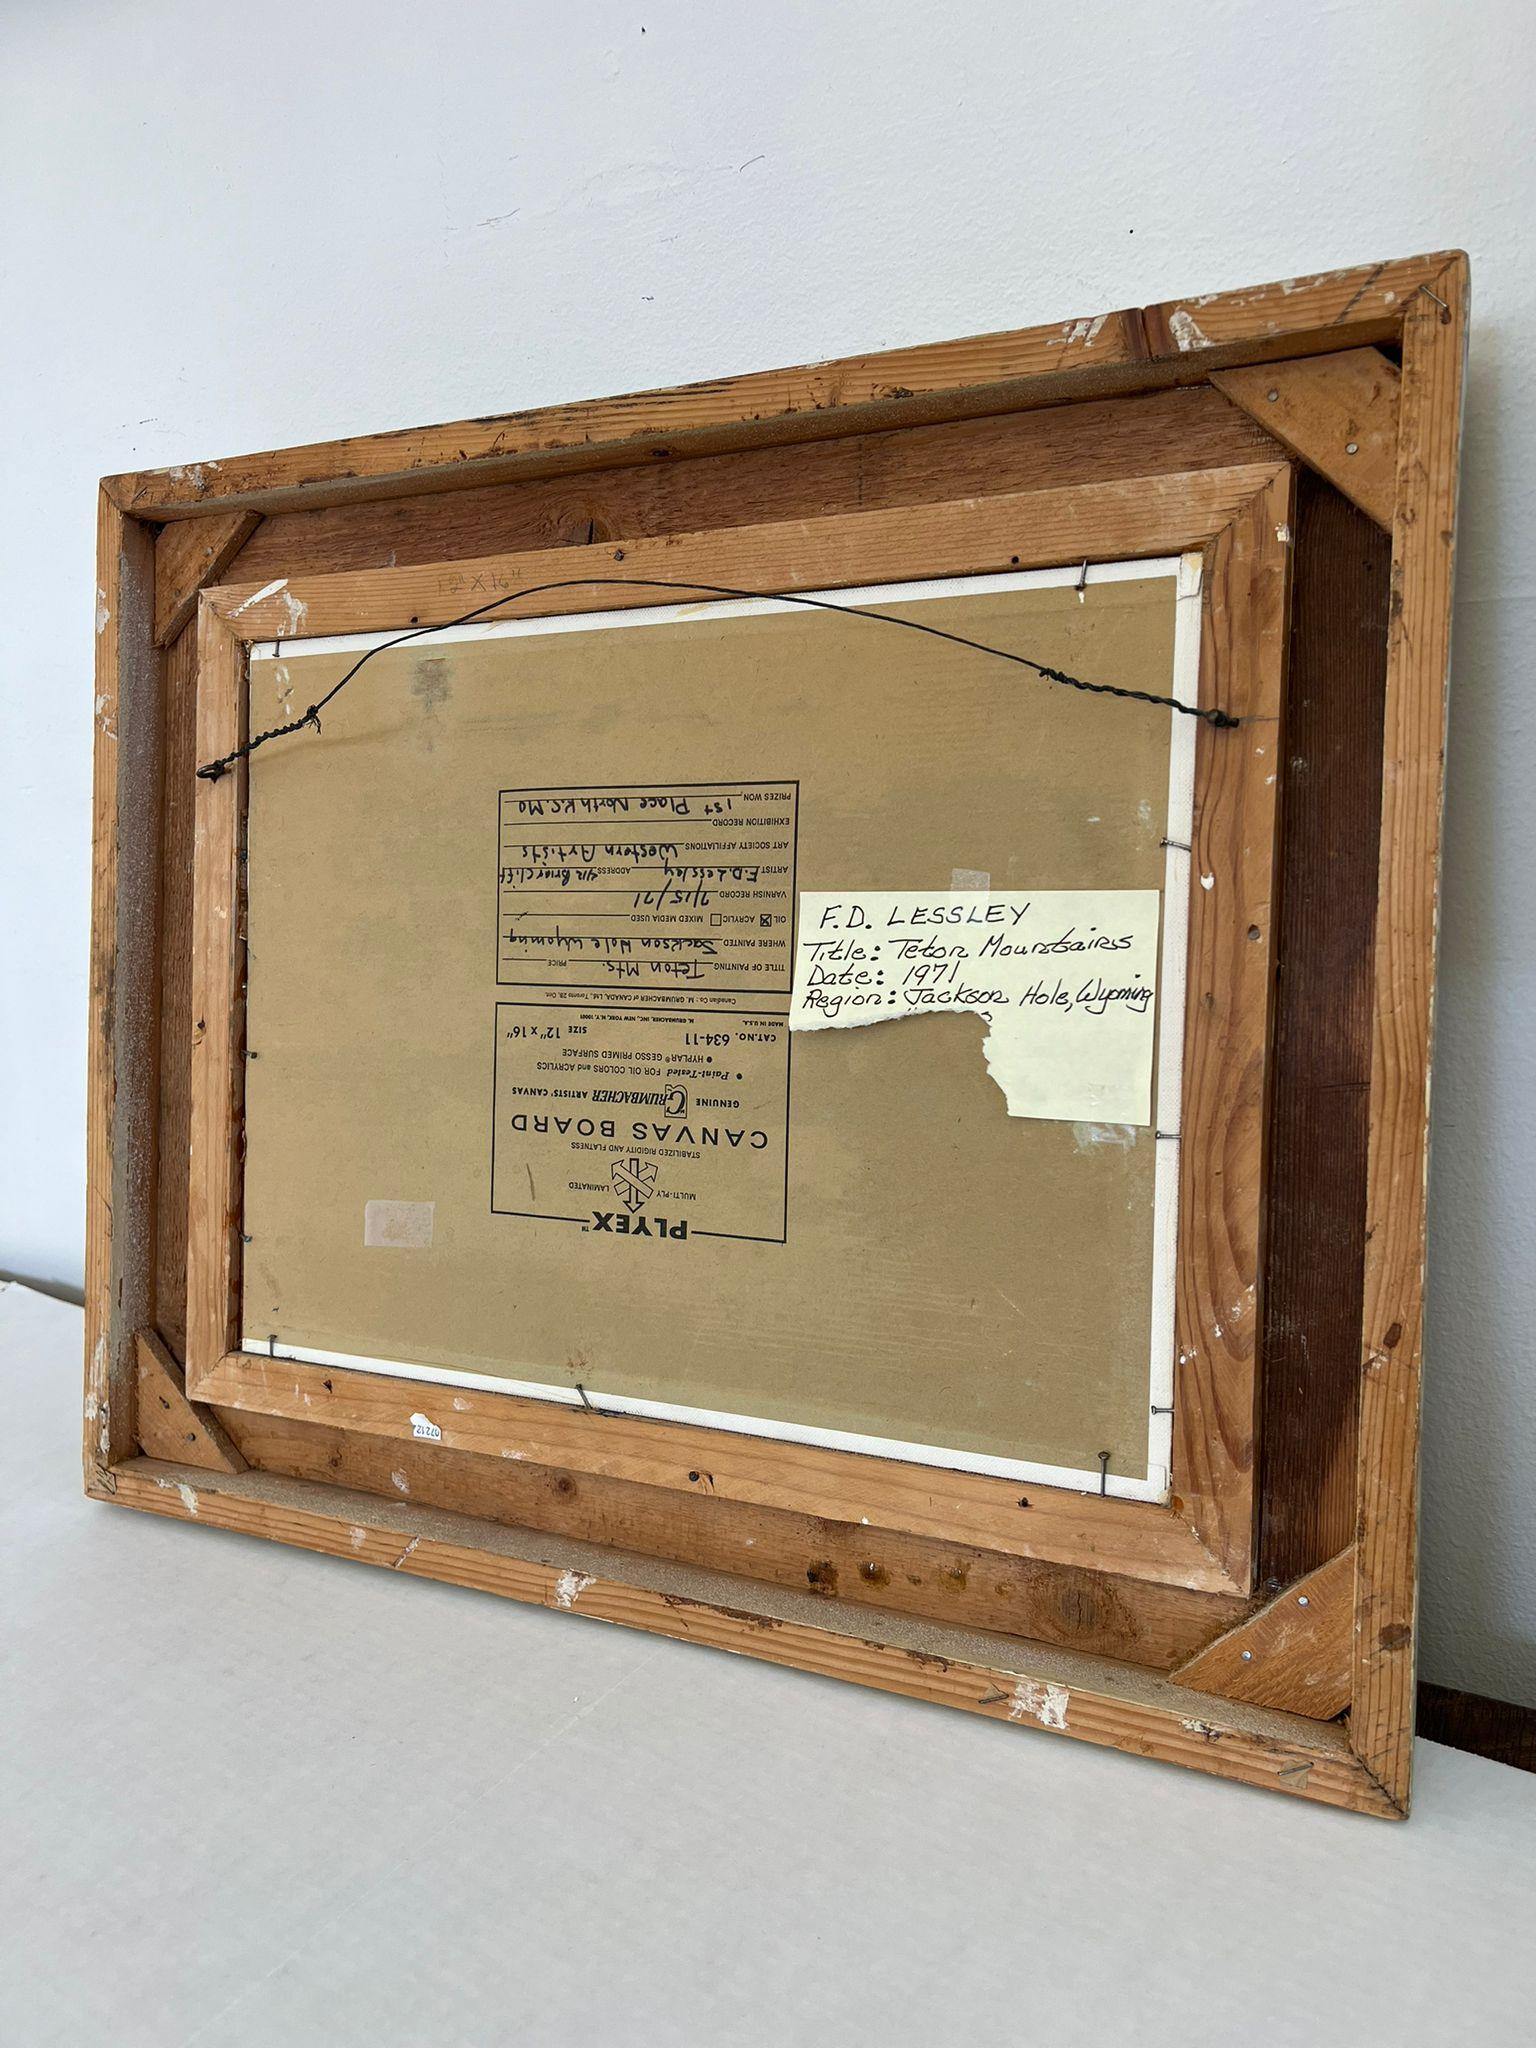 12" X 16"
F.D. LESSLEY
Title: Teton Mountains
Date: 1971
Region: Jackson Hole, Wyoming
PLYEX™
MULTI-PLY LAMINATED
STABILIZED RIGIDITY AND FLATNESS
CANVAS BOARD
GENUINE GRUMBACHER ARTISTS' CANVAS
• Paint-Tested FOR OIL COLORS and ACRYLICS
• HYPLAR® GESSO PRIMED SURFACE
CAT.NO. 634-11 SIZE 12" x 16"
MADE IN U.S.A. M. GRUMBACHER, INC., NEW YORK, N.Y. 10001
Canadian Co.: M. GRUMBACHER of CANADA, Ltd., Toronto 2B, Ont.
TITLE OF PAINTING Teton Mts. PRICE
WHERE PAINTED Jackson Hole Wyoming
OIL ☒ ACRYLIC ☐ MIXED MEDIA USED
VARNISH RECORD 7/15/71
ARTIST F.D. Lessley ADDRESS Briarcliff
ART SOCIETY AFFILIATIONS Western Artists
EXHIBITION RECORD
PRIZES WON 1st Place North K.C. Mo
07212